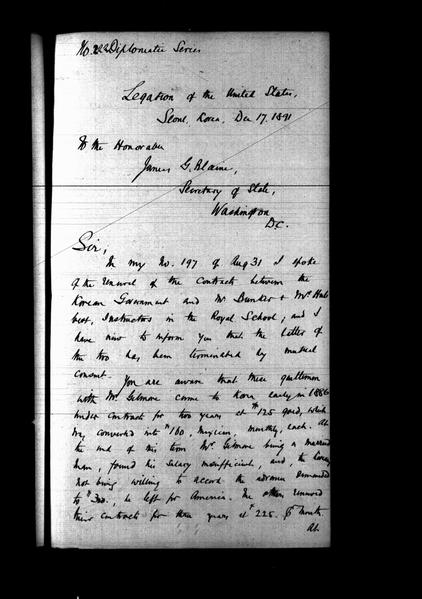 No. 222 Diplomatic Series
Legation of the United States,
Seoul, Korea, Dec 17, 1891
To the Honorable
James G. Blaine,
Secretary of State,
Washington
D.C.
Sir,
In my No. 197 of Aug 31 I spoke
of the renewal of the contracts between the
Korean Government and Mr Bunker & Mr Hul-
bert, Instructors in the Royal School; and I
have now to inform you that the latter of
the two has been terminated by mutual
consent.
You are aware that these gentlemen
with Mr. Gilmore came to Korea early in 1886
under contract for two years at $125 gold, which
they converted into $160, Mexican, monthly, each. At
the end of this term Mr. Gilmore being a married
man, found his salary insufficient, and, the
not being willing to accord the advance demanded
to $300, he left for America. The others renewed
their contracts for three years at $225. ⅌ month.
At